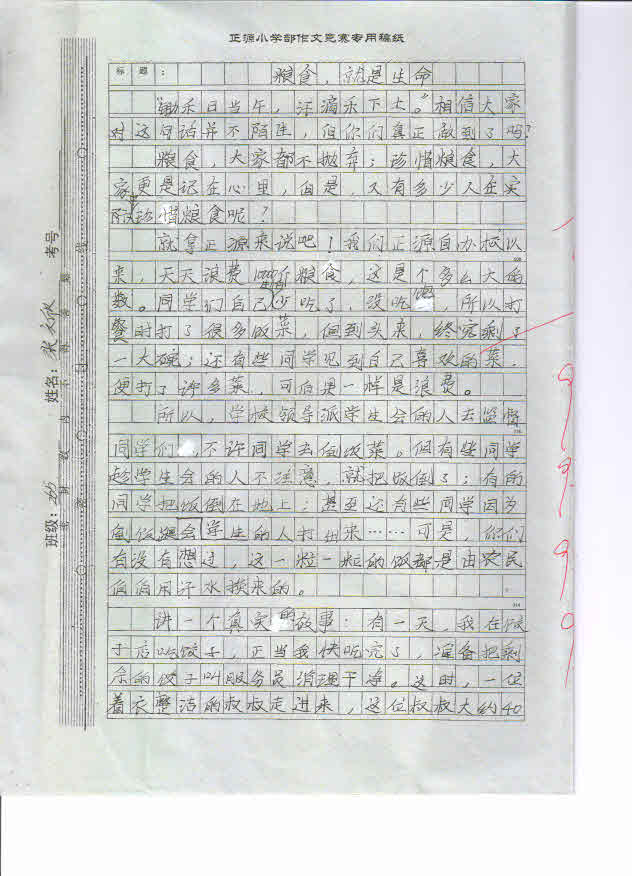 正源小学部作文竞赛专用稿纸
标题：粮食，就是生命
“锄禾日当午，汗滴禾下土。”相信大家
对这句话并不陌生，但你们真正做到了吗？
粮食，大家都不抛弃；珍惜粮食，大
家更是记在心里，但是，又有多少人在实
际珍惜粮食呢？
就拿正源来说吧！我们正源自办校以
来，天天浪费1000斤粮食，这是个多么大的
数。同学们自己少吃了，没吃饱，所以打
餐时打了很多饭菜，但到头来，终究剩了
一大碗；还有些同学见到自己喜欢的菜，
便打了许多菜，可后果一样是浪费。
所以，学校领导派学生会的人去监督
同学们，不许同学去倒饭菜。但有些同学
趁学生会的人不注意，就把饭倒了；有的
同学把饭倒在地上；甚至还有些同学因为
倒饭跟会学生的人打出来……可是，你们
有没有想过，这一粒一粒的饭都是由农民
伯伯用汗水换来的。
讲一个真实的故事：有一天，我在饺
子店吃饺子，正当我快吃完了，准备把剩
余的饺子叫服务员清理干净。这时，一位
着衣整洁的叔叔走进来，这位叔叔大约40
班级：
姓名：
考号